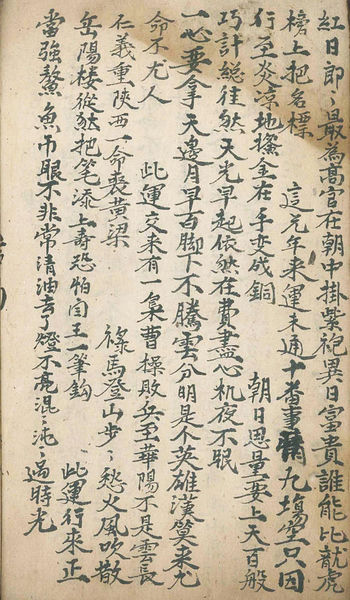 紅日郎〻最為髙官在朝中掛紫袍異日富貴誰能比就虎
榜上把名標　這几年来運未通十番事 九塲空只因
行至炎凉地 金在手变成銅　朝日思量要上天百般
巧計総徃然天光早起依然在費盡心机夜不眠
一心要拿天邊月早百脚下不騰雲分明是个英雄漢算来九
命不尤人　此運交来有一梟曹操敗兵至華陽不是雲長
仁義重陝西一命喪黄梁　祿馬登山步〻愁火風吹散
岳陽楼從然把笔添上壽恐怕閆王一筆鈎　此運行来正
當強鰲魚吊眼不非常清油去了燈不亮混〻沌〻過時光